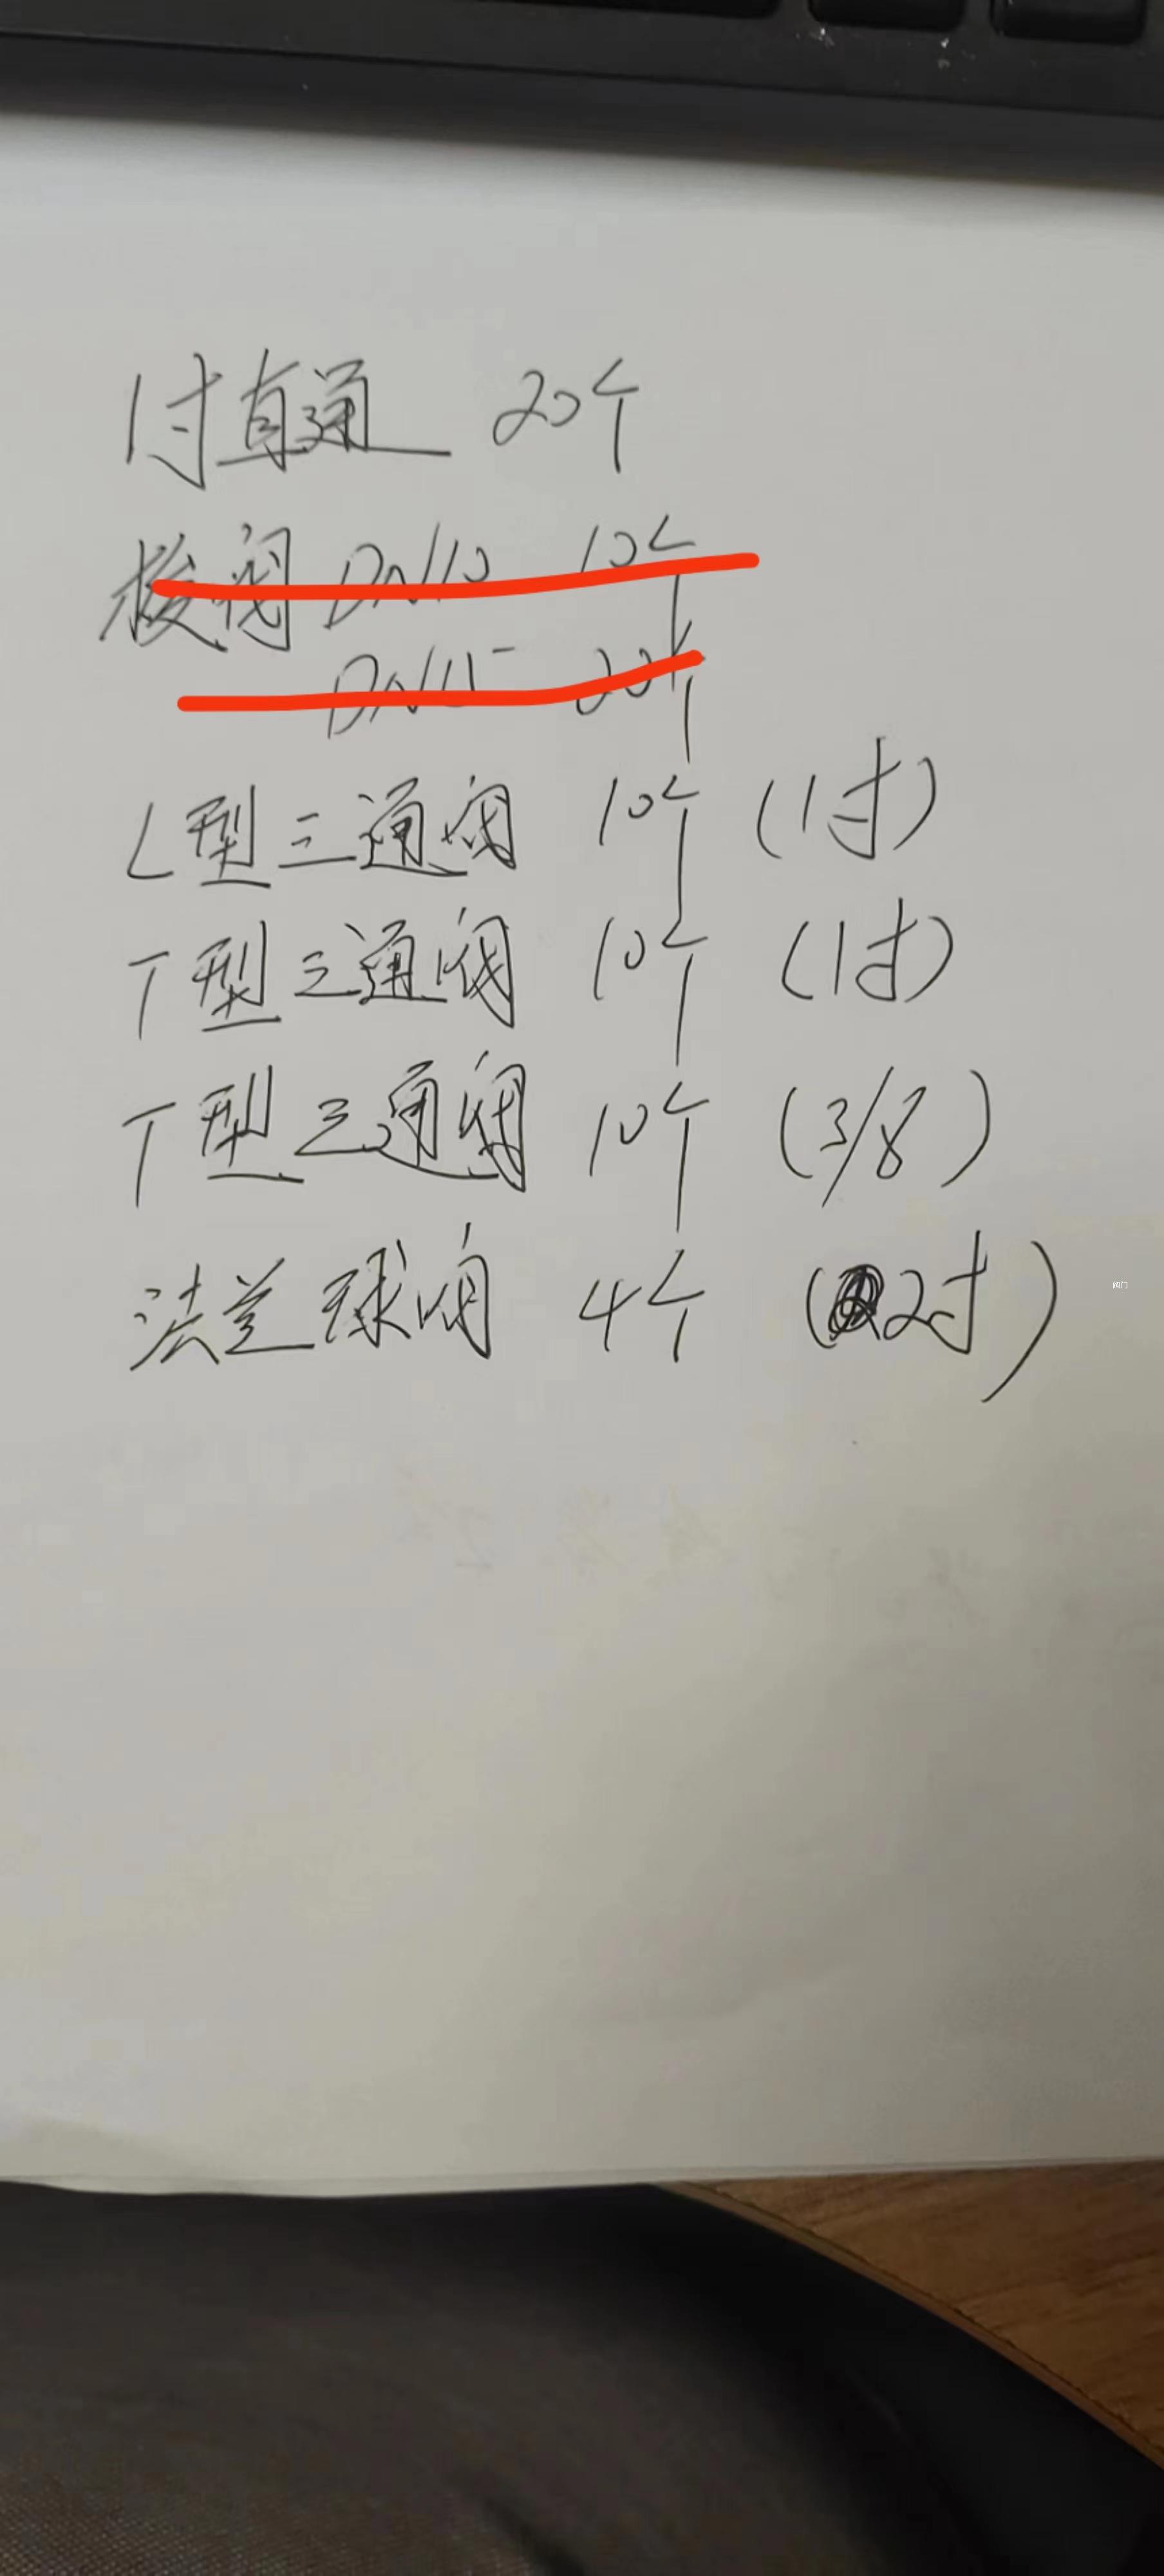 1寸直通 20个
梭阀 DN10 10个
DN15 20个
L型三通阀 10个 (1寸)
T型三通阀 10个 (1寸)
T型三通阀 10个 (3/8)
法兰球阀 4个 (2寸)
阀门